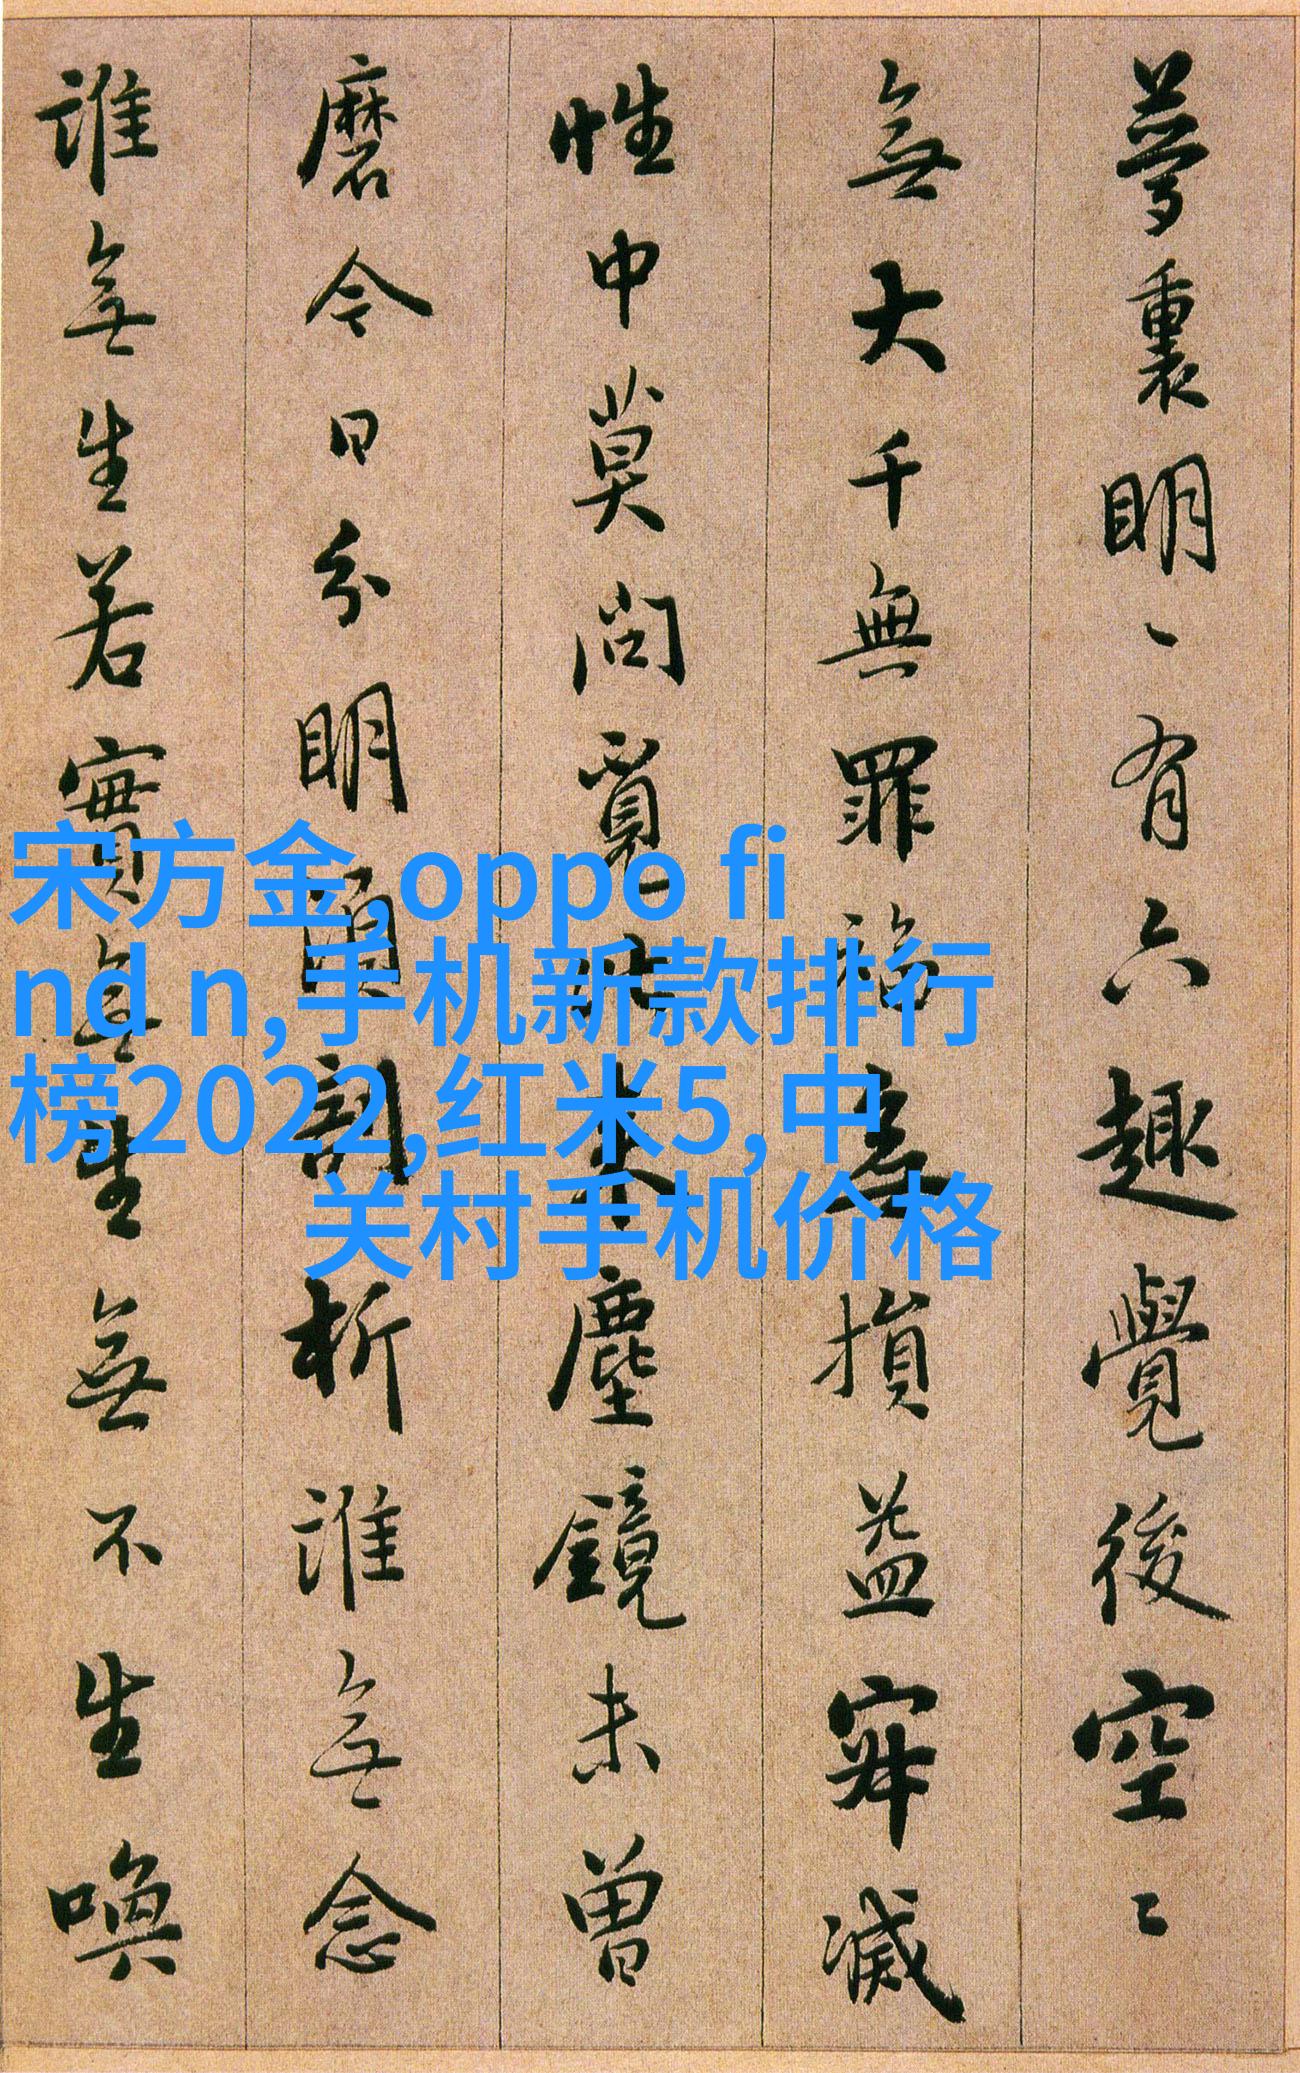 夢裏明〻有六趣覺後空〻
無大千無罪福無損益寂滅
性中莫問覓比来塵鏡未曾
磨今日分明須剖析誰無念
誰無生若實無生無不生喚
宋方金,oppo fi
nd n,手机新款排行
榜2022,红米5,中
关村手机价格